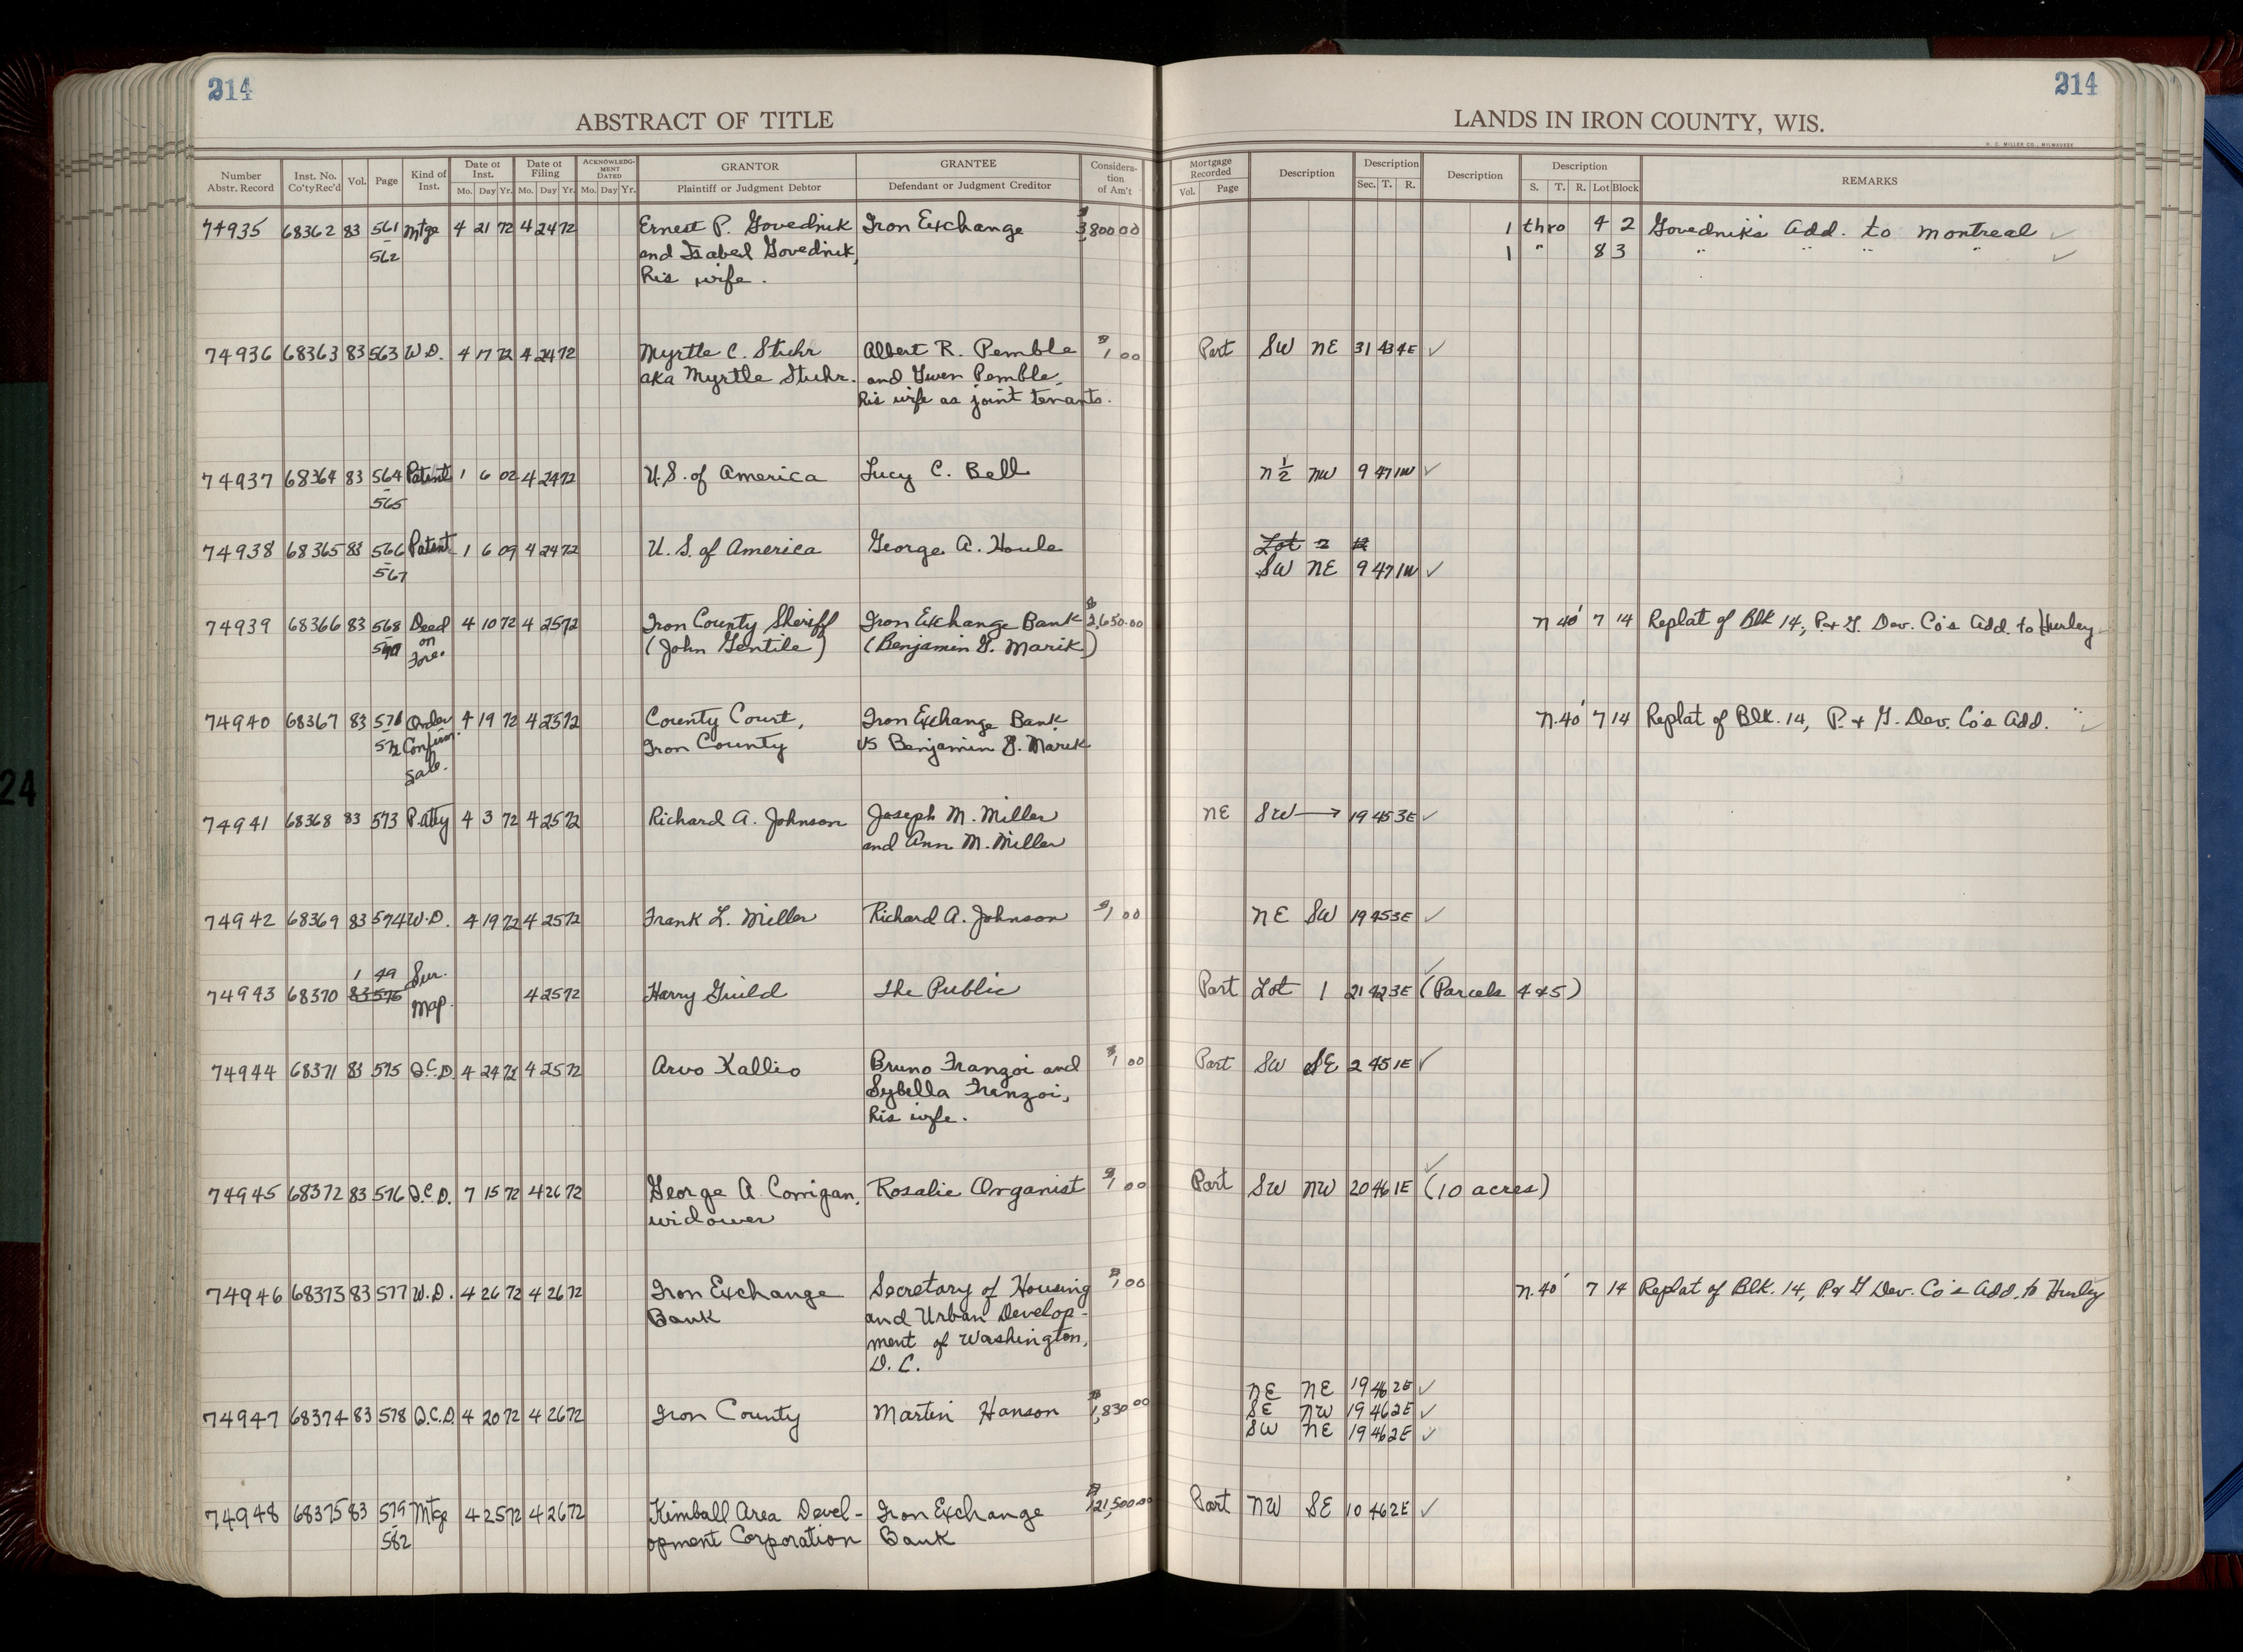 214
214
ABSTRACT OF TITLE
LANDS IN IRON COUNTY, WIS.
H. C. MILLER CO., MILWAUKEE
Number Abstr. Record | Inst. No. Co'ty Rec'd | Vol. | Page | Kind of Inst. | Date of Inst. Mo. Day Yr. | Date of Filing Mo. Day Yr. | ACKNOWLEDGMENT DATED Mo. Day Yr. | GRANTOR Plaintiff or Judgment Debtor | GRANTEE Defendant or Judgment Creditor | Consideration of Am't | Mortgage Recorded Vol. Page | Description | Description Sec. T. R. | Description | Description S. T. R. Lot Block | REMARKS
74935 68362 83 561 Mtge 4 21 72 4 24 72 Ernest P. Govednik Iron Exchange $3,800 00 1 thro 4 2 Govednik's Add. to Montreal ✓
- 562 and Isabel Govednik, 1 " 8 3 " " " " ✓
his wife.
74936 68363 83 563 W.D. 4 17 72 4 24 72 Myrtle C. Stuhr Albert R. Pemble $1 00 Part SW NE 31 43 4E ✓
aka Myrtle Stuhr. and Gwen Pemble,
his wife as joint tenants.
74937 68364 83 564 Patent 1 6 02 4 24 72 U.S. of America Lucy C. Bell N 1/2 NW 9 47 1W ✓
- 565
74938 68365 83 566 Patent 1 6 09 4 24 72 U.S. of America George A. Houle Lot 2
- 567 SW NE 9 47 1W ✓
74939 68366 83 568 Deed 4 10 72 4 25 72 Iron County Sheriff Iron Exchange Bank $2,650.00 N 40' 7 14 Replat of Blk 14, P. & G. Dev. Co's Add. to Hurley
- on Fore. (John Gentile) (Benjamin G. Marik)
74940 68367 83 571 Order 4 19 72 4 25 72 County Court, Iron Exchange Bank N.40' 7 14 Replat of Blk. 14, P. & G. Dev. Co's Add. " ✓
- 572 Confirm. Sale. Iron County vs Benjamin G. Marik
74941 68368 83 573 P. Atty 4 3 72 4 25 72 Richard A. Johnson Joseph M. Miller NE SW → 19 45 3E ✓
and Ann M. Miller
74942 68369 83 574 W.D. 4 19 72 4 25 72 Frank L. Miller Richard A. Johnson $1 00 NE SW 19 45 3E ✓
1 49 Sur.
74943 68370 83 575 Map. 4 25 72 Harry Guild The Public Part Lot 1 21 42 3E ✓ (Parcels 4 & 5)
74944 68371 83 575 Q.C.D. 4 24 72 4 25 72 Arvo Kallio Bruno Franzoi and $1 00 Part SW SE 2 45 1E ✓
Sybella Franzoi,
his wife.
74945 68372 83 576 Q.C.D. 7 15 72 4 26 72 George A. Corrigan, Rosalie Organist $1 00 Part SW NW 20 46 1E ✓ (10 acres)
widower
74946 68373 83 577 W.D. 4 26 72 4 26 72 Iron Exchange Secretary of Housing $1 00 N.40' 7 14 Replat of Blk. 14, P. & G Dev. Co's Add. to Hurley
Bank and Urban Develop-
ment of Washington,
D.C.
NE NE 19 46 2E ✓
74947 68374 83 578 Q.C.D. 4 20 72 4 26 72 Iron County Martin Hanson $1,830 00 SE NW 19 46 2E ✓
SW NE 19 46 2E ✓
74948 68375 83 579 Mtge 4 25 72 4 26 72 Kimball Area Devel- Iron Exchange $121,500.00 Part NW SE 10 46 2E ✓
- 582 opment Corporation Bank
24